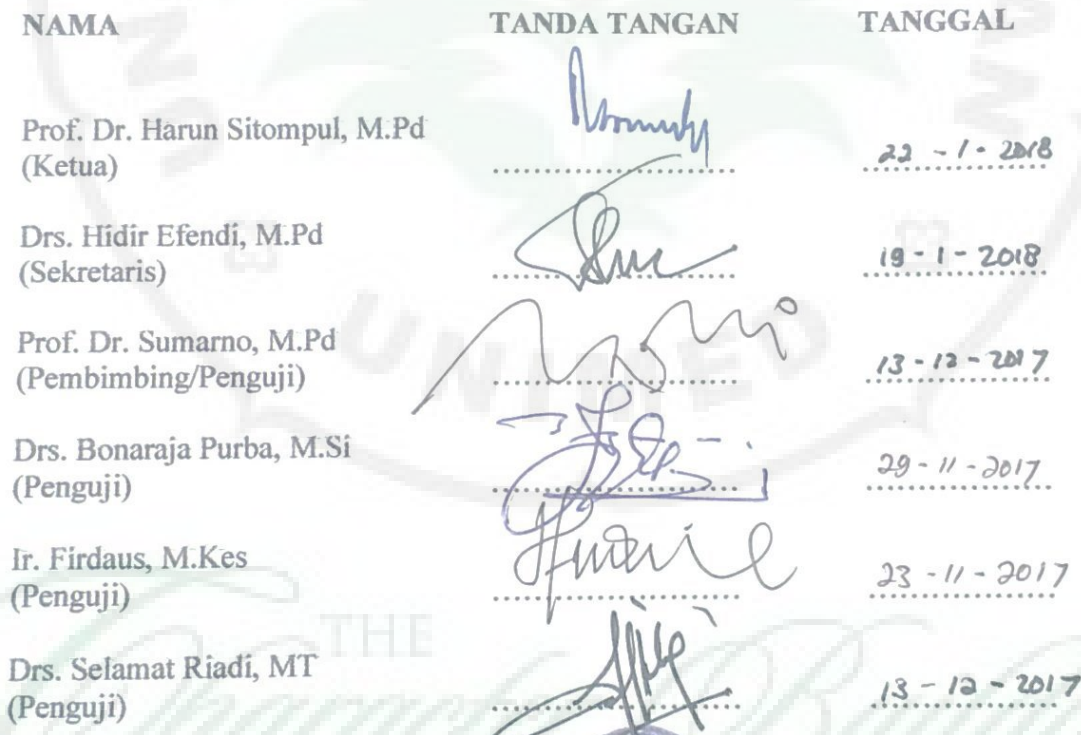 NAMA TANDA TANGAN TANGGAL
Prof. Dr. Harun Sitompul, M.Pd
(Ketua) 22 - 1 - 2018
Drs. Hidir Efendi, M.Pd
(Sekretaris) 19 - 1 - 2018
Prof. Dr. Sumarno, M.Pd
(Pembimbing/Penguji) 13 - 12 - 2017
Drs. Bonaraja Purba, M.Si
(Penguji) 29 - 11 - 2017
Ir. Firdaus, M.Kes
(Penguji) 23 - 11 - 2017
Drs. Selamat Riadi, MT
(Penguji) 13 - 12 - 2017
UNIMED
THE